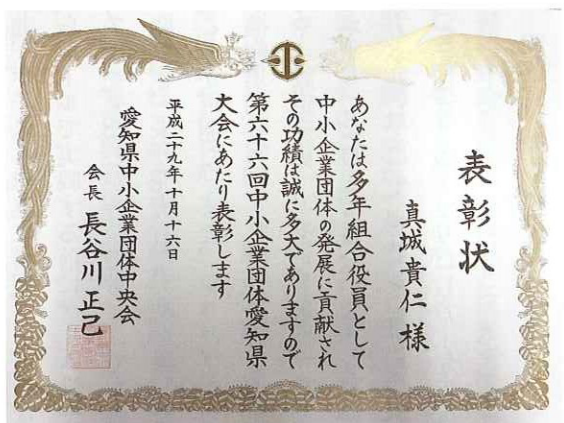 表彰状
真城貴仁様
あなたは多年組合役員として
中小企業団体の発展に貢献され
その功績は誠に多大でありますので
第六十六回中小企業団体愛知県
大会にあたり表彰します
平成二十九年十月十六日
愛知県中小企業団体中央会
会長 長谷川正己